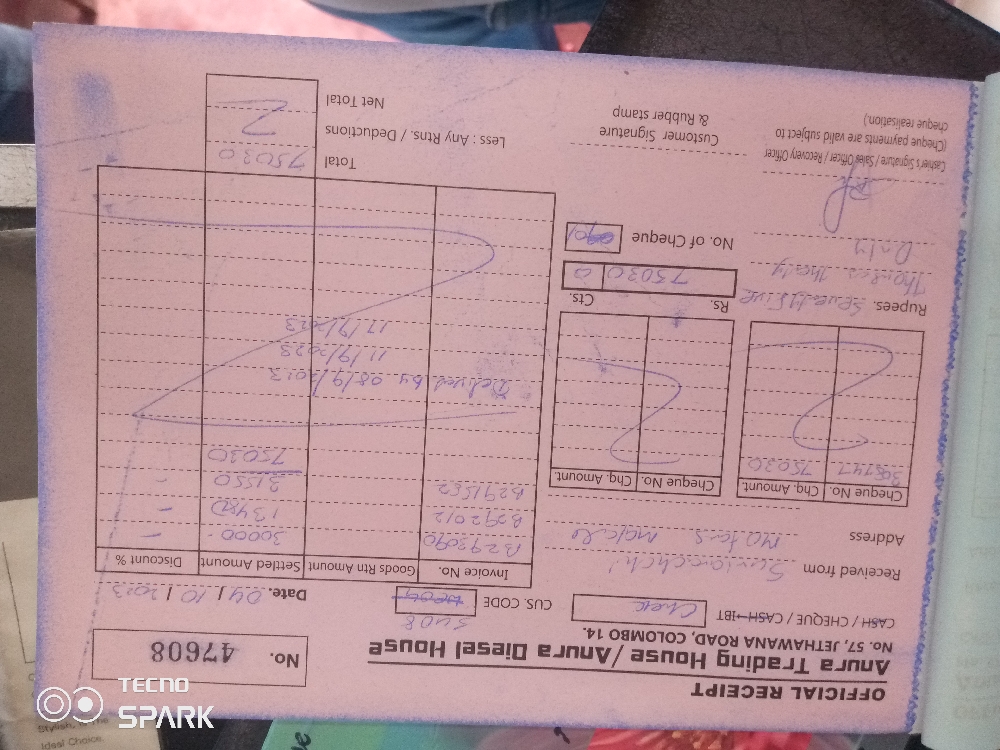 OFFICIAL RECEIPT
Anura Trading House / Anura Diesel House
No. 57, JETHAWANA ROAD, COLOMBO 14.
No. 47608
CASH / CHEQUE / CASH IBT
CUS. CODE
Date. 04/10/2023
Received from
Address Motors
Cheque No. Chq. Amount Cheque No. Chq. Amount
75030
Invoice No. Goods Rtn Amount Settled Amount Discount %
B292090 30000 -
B292012 -
B291552 31550 -
75030
Delived by 08/9/2023
11/9/2023
17/9/2023
Rupees.
Only
Rs. Cts.
75030 0
No. of Cheque 01
Total 75030
Less : Any Rtns. / Deductions
Net Total
Cashier's Signature / Sales Officer / Recovery Officer
(Cheque payments are valid subject to
cheque realisation.)
Customer Signature
& Rubber stamp
TECNO
SPARK
Ideal Choice.